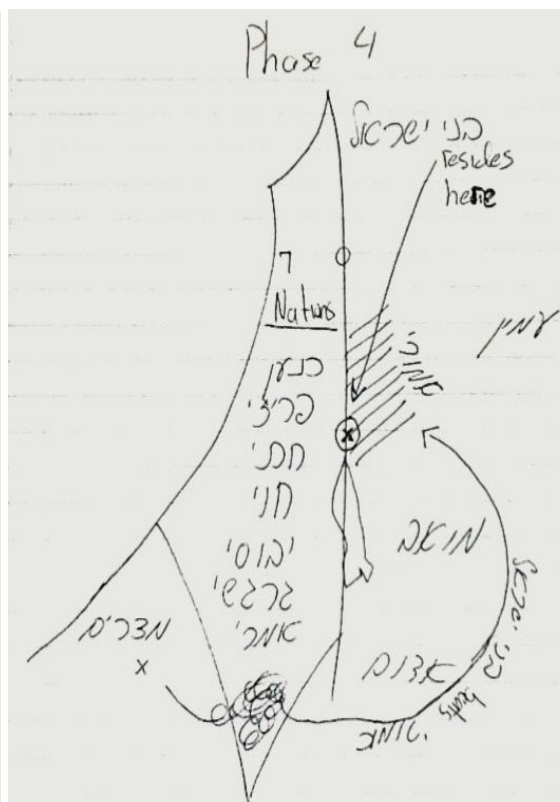 Phase 4
בני ישראל
resides
here
7
Nations
כנען
פריזי
חתי
חוי
יבוסי
גרגשי
אמרי
אמורי
עמון
x
מואב
אדום
מצרים
x
בני ישראל